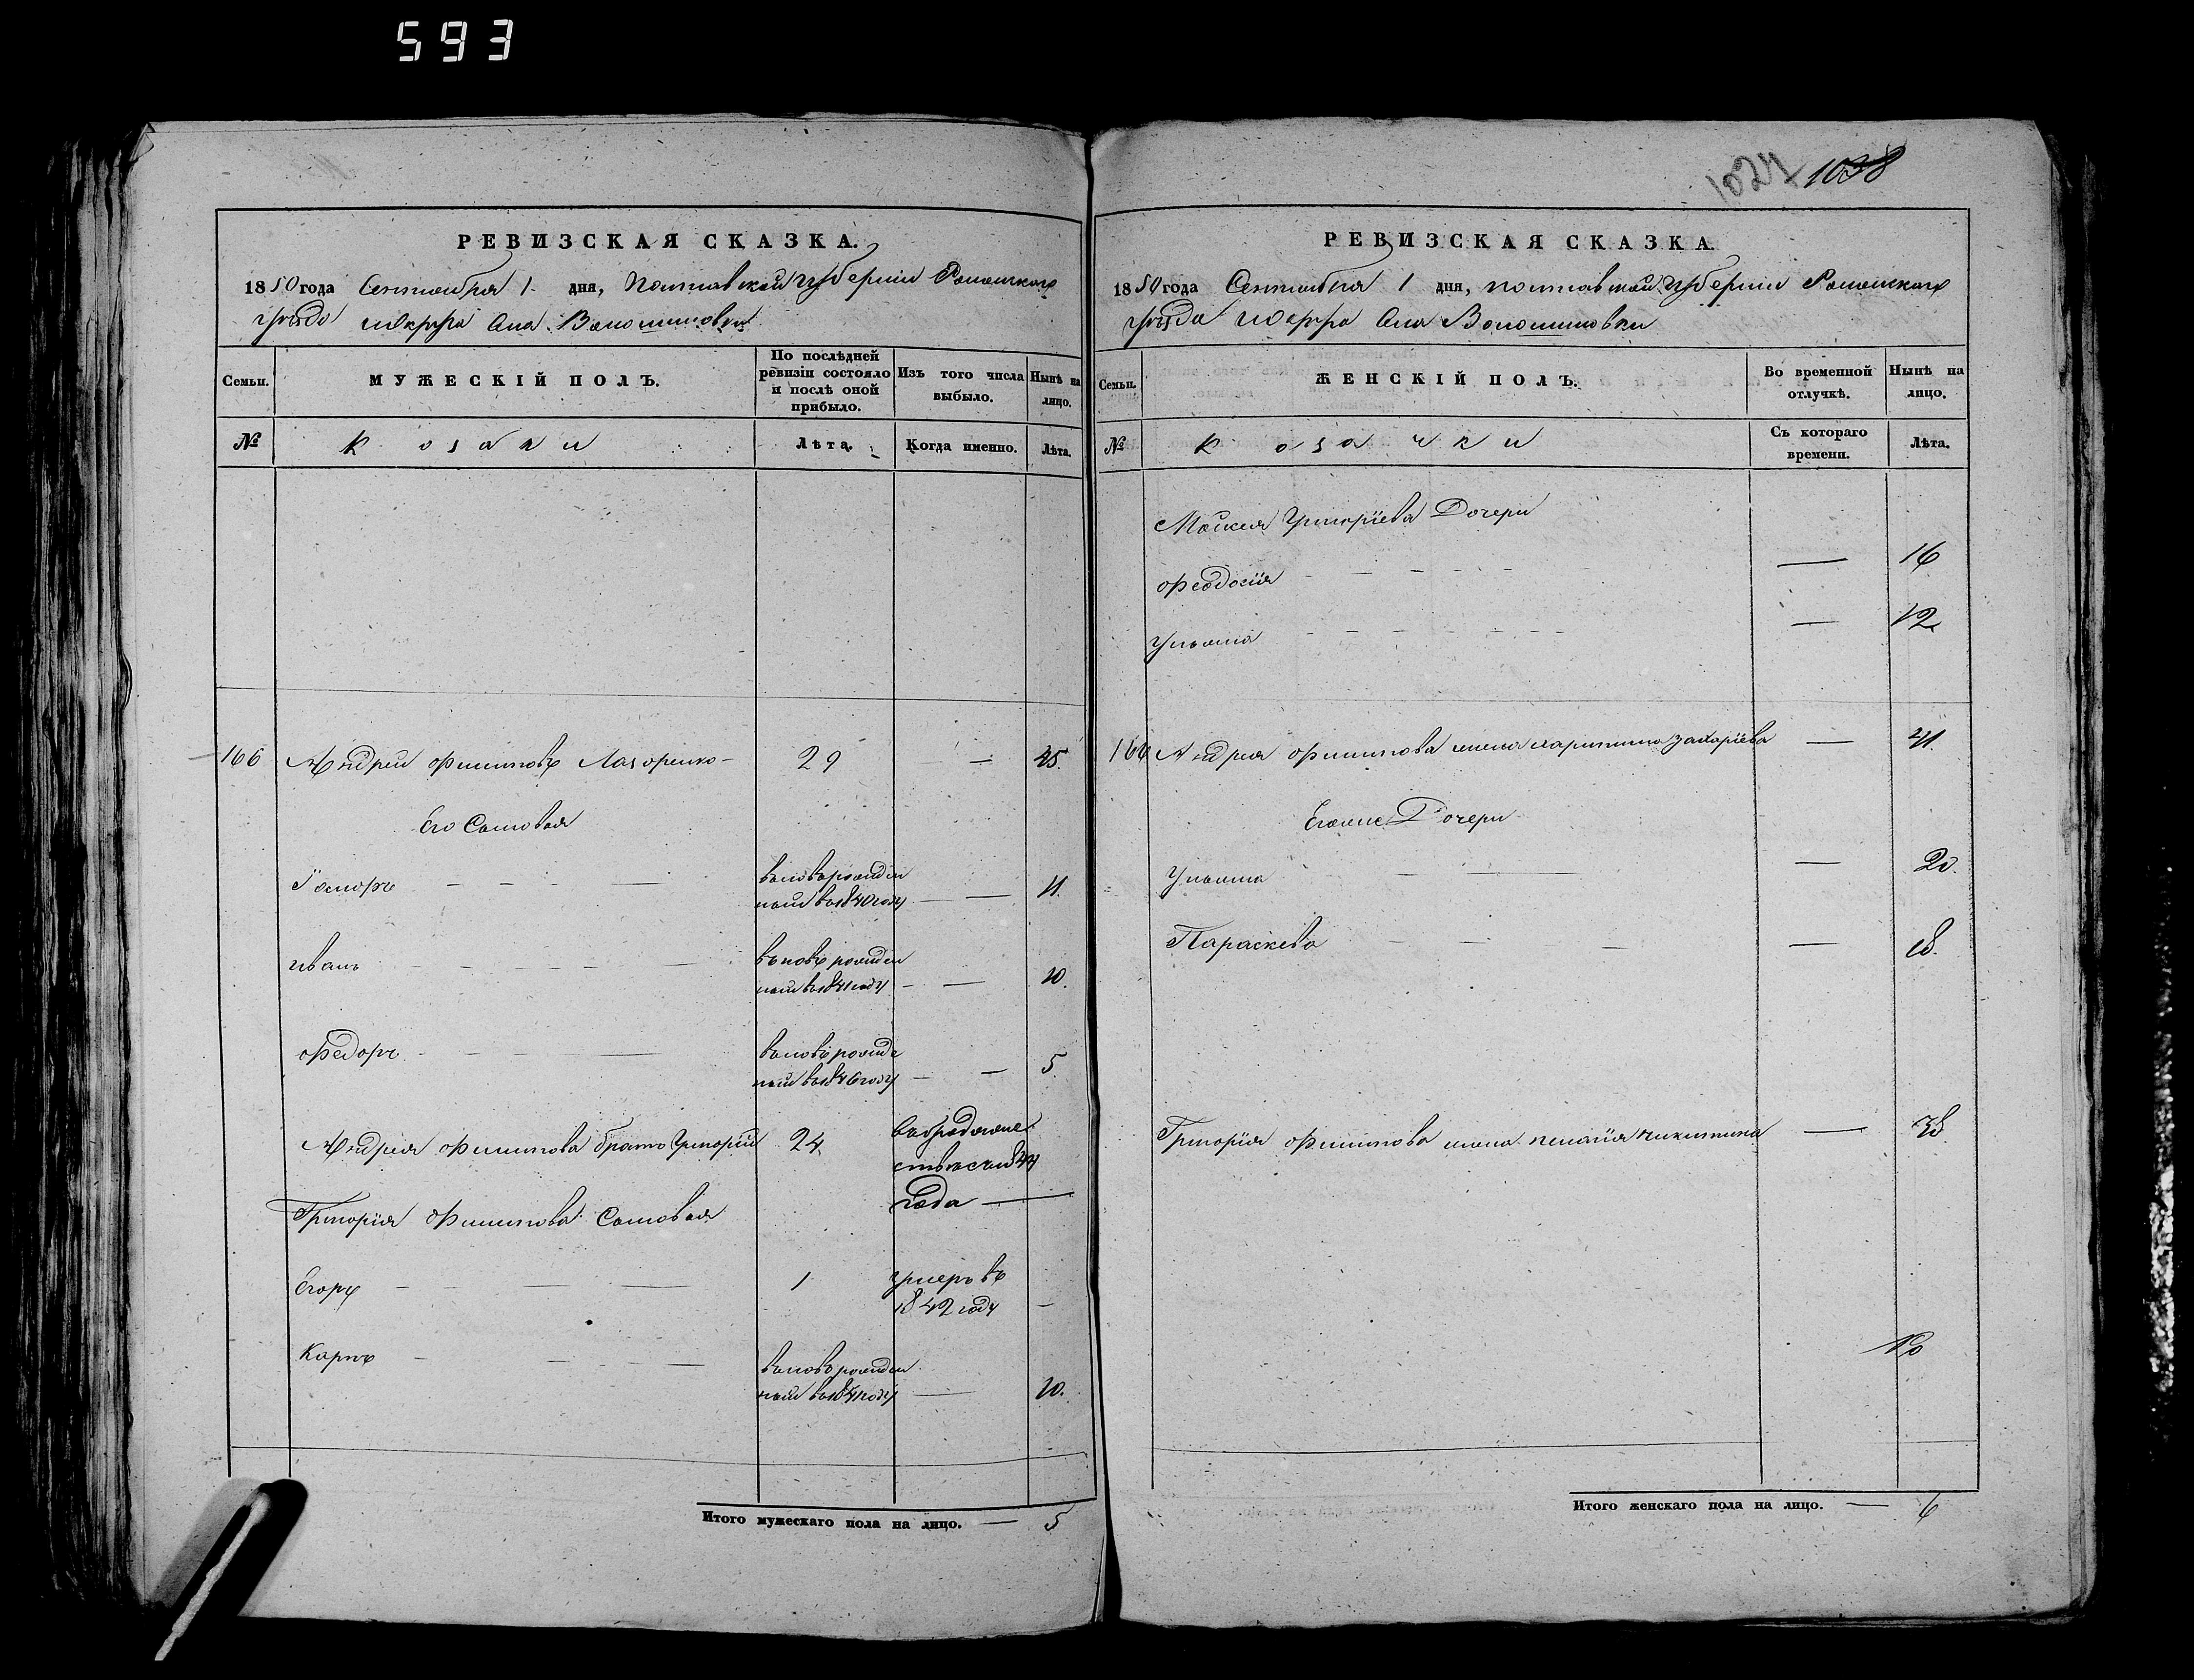 593
1024 1038
РЕВИЗСКАЯ СКАЗКА.
1850 года Сентября 1 дня, Полтавской губернии Роменскаго
уѣзда Села Волошиновки
Семьи.
МУЖЕСКІЙ ПОЛЪ.
По послѣдней ревизіи состояло и послѣ оной прибыло.
Изъ того числа выбыло.
Нынѣ на лицо.
№
козаки
Лѣта.
Когда именно.
Лѣта.
166 Андрей Филиповъ Лазоренко 29 — 45.
Его Сыновья
вновь рожден
ный въ 1840 году — 11.
Иванъ вновь рожден
ный въ 1841 году — 10.
Федоръ вновь рожде
ный въ 1846 году — 5
Андрея Филипова братъ Григорій 24 въ бродяже
стве съ 1844
года —
Григорія Филипова Сыновья
Егоръ 1 умеръ въ
1842 году —
Карпъ вновь рожден
ный въ 1841 году — 10.
Итого мужескаго пола на лицо. — 5
РЕВИЗСКАЯ СКАЗКА.
1850 года Сентября 1 дня, Полтавской губернии Роменскаго
уѣзда Села Волошиновки
Семьи.
ЖЕНСКІЙ ПОЛЪ.
Во временной отлучкѣ.
Нынѣ на лицо.
№
козачки
Съ котораго времени.
Лѣта.
Григоріева Дочери
Феодосія — 16
Ульяна — 12
166 Андрея Филипова жена Харитина Захаріева — 41.
Дочери
Ульяна — 20.
Параскева — 18.
Григорія Филипова жена Пелагія Никитина — 38
Итого женскаго пола на лицо. — 6